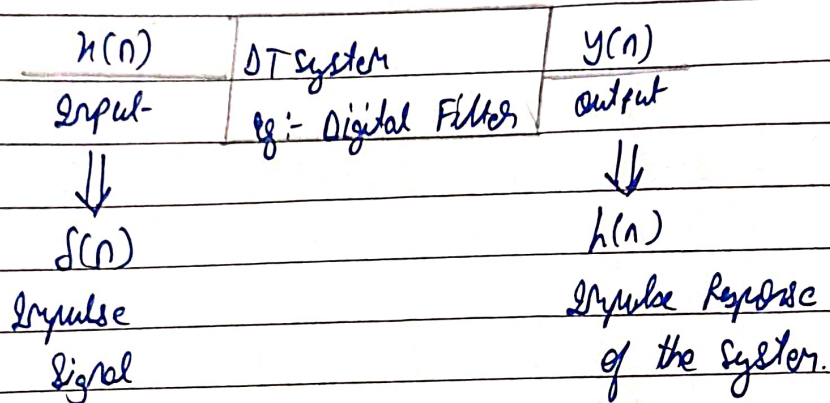 x(n)
Input
DT System
eg :- Digital Filter
y(n)
output
⇓
⇓
δ(n)
h(n)
Impulse
Signal
Impulse Response
of the System.